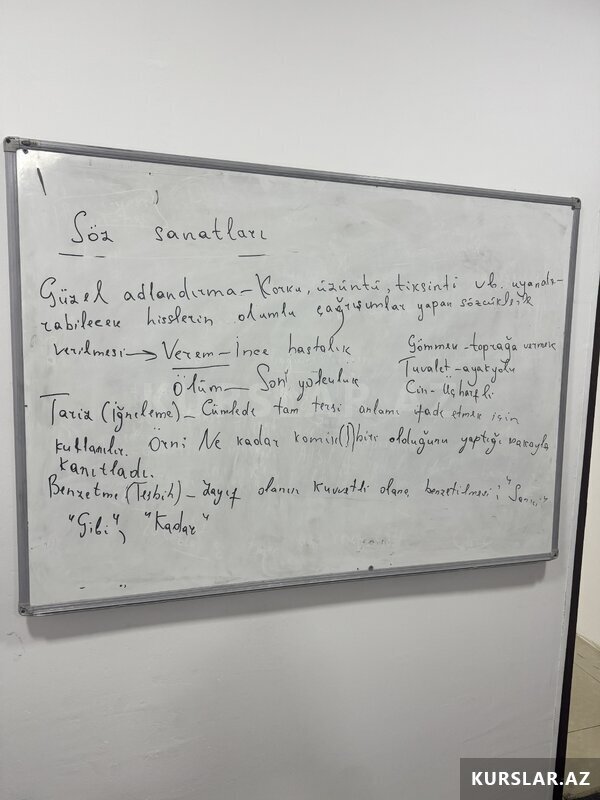 Söz sanatları
Güzel adlandırma – Korku, üzüntü, tiksinti vb. uyandı-
rabilecek hisslerin olumlu çağrışımlar yapan sözcüklerle
verilmesi → Verem – İnce hastalık
Ölüm – Son yolculuk
Gömmek – toprağa vermek
Tuvalet – ayakyolu
Cin – Üç harfli
Tariz (İğneleme) – Cümlede tam tersi anlamı ifade etmek için
kullanılır. Örn: Ne kadar komik(!) biri olduğunu yaptığı şakayla
kanıtladı.
Benzetme (Teşbih) – Zayıf olanın kuvvetli olana benzetilmesi; "Sanki"
"Gibi", "Kadar"
KURSLAR.AZ